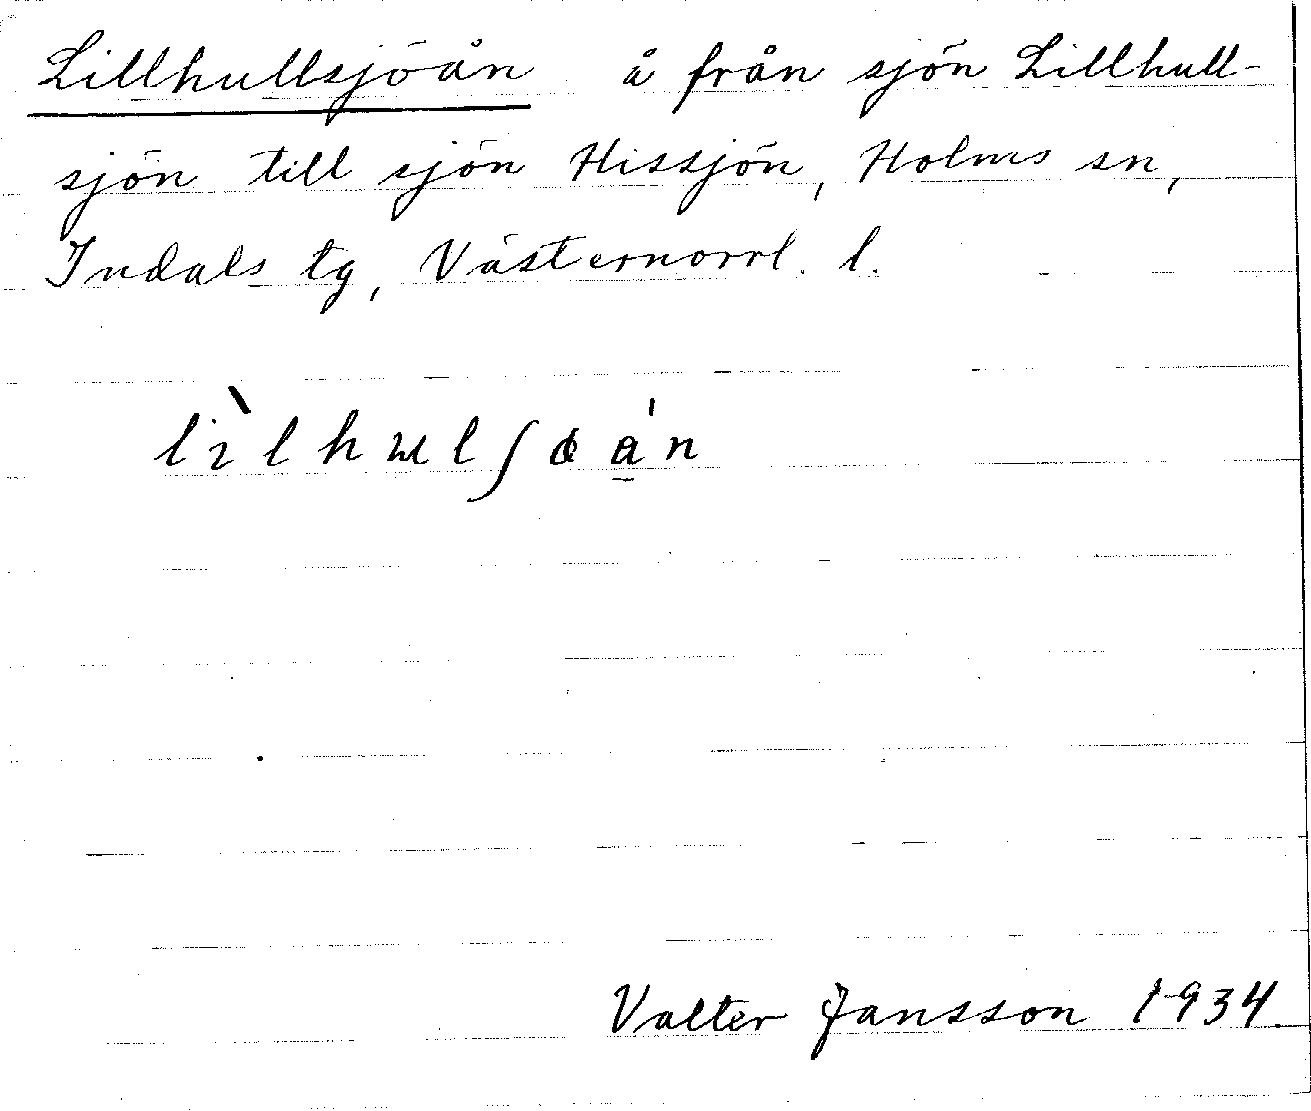 Lillhullsjöån å från sjön Lillhull-
sjön till sjön Hissjön, Holms sn,
Indals tg, Västernorrl. l.
lìlhulʃøa̱ń
Valter Jansson 1934.